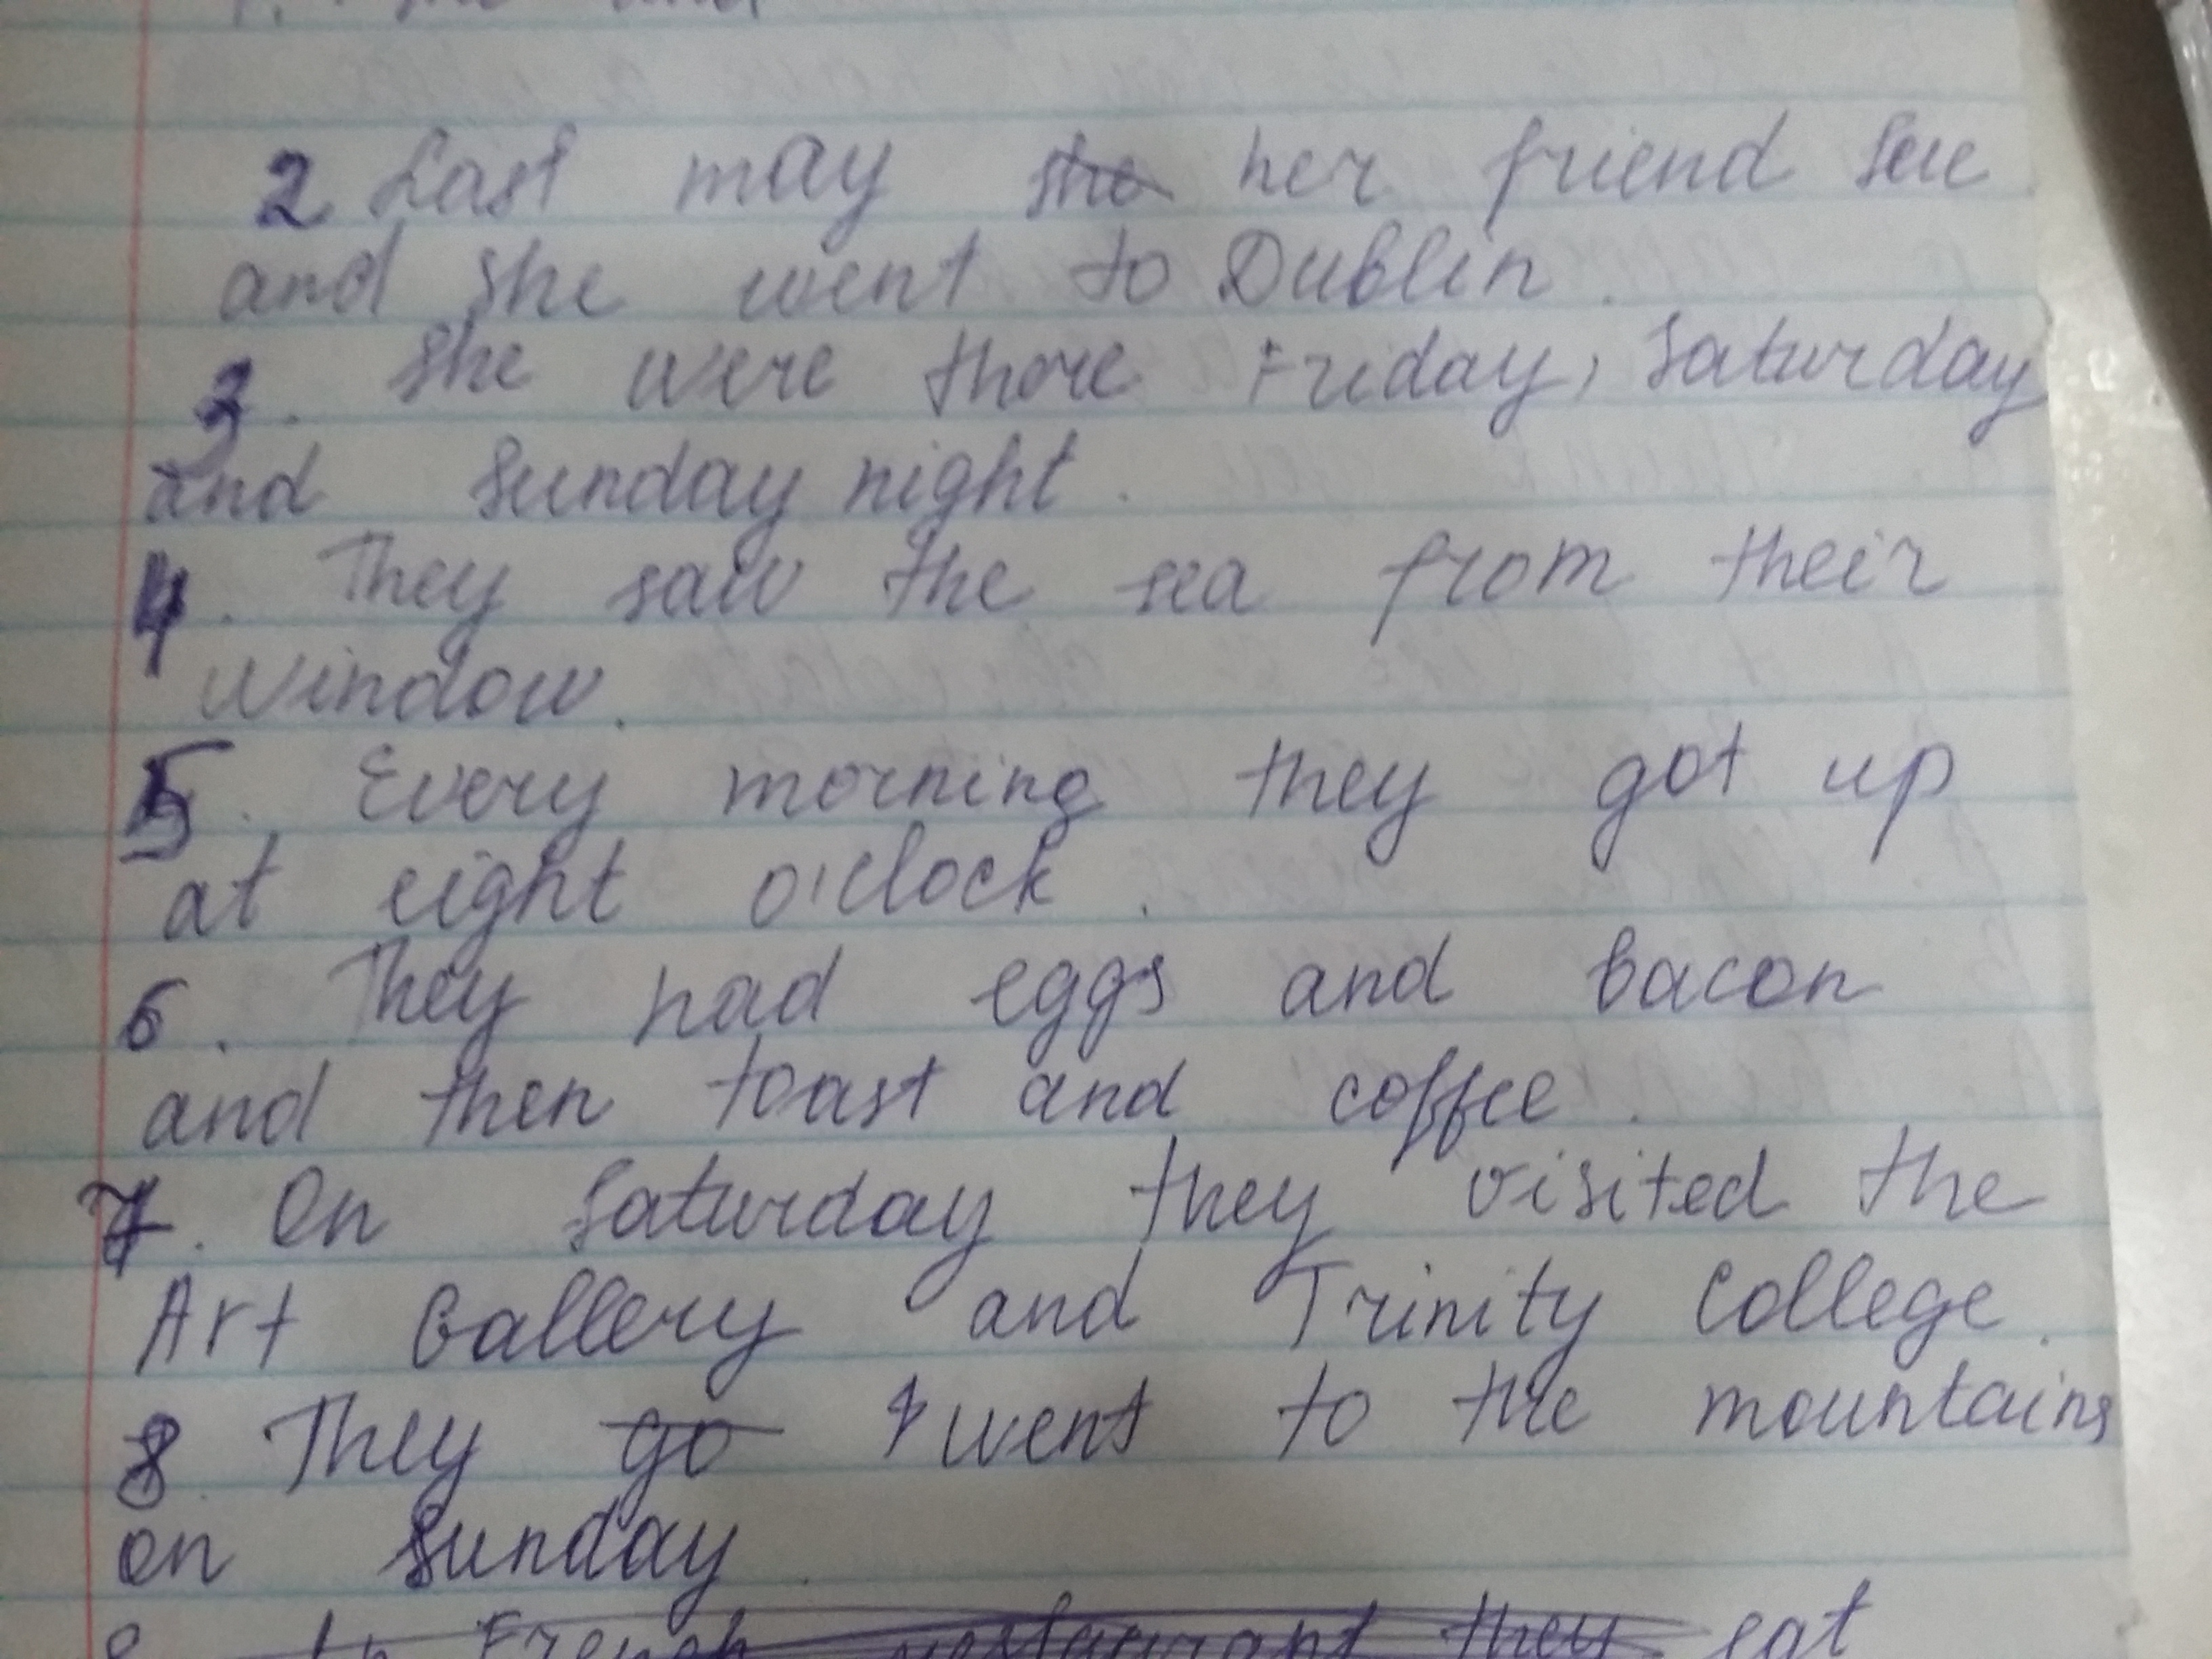 2 Last may she her friend sue
and she went to Dublin.
3. She were there Friday, Saturday
and Sunday night.
4. They saw the sea from their
window.
5. Every morning they got up
at eight o'clock.
6. They had eggs and bacon
and then toast and coffee.
7. On Saturday they visited the
Art Gallery and Trinity College.
8. They go went to the mountains
on Sunday.
French restaurant they eat